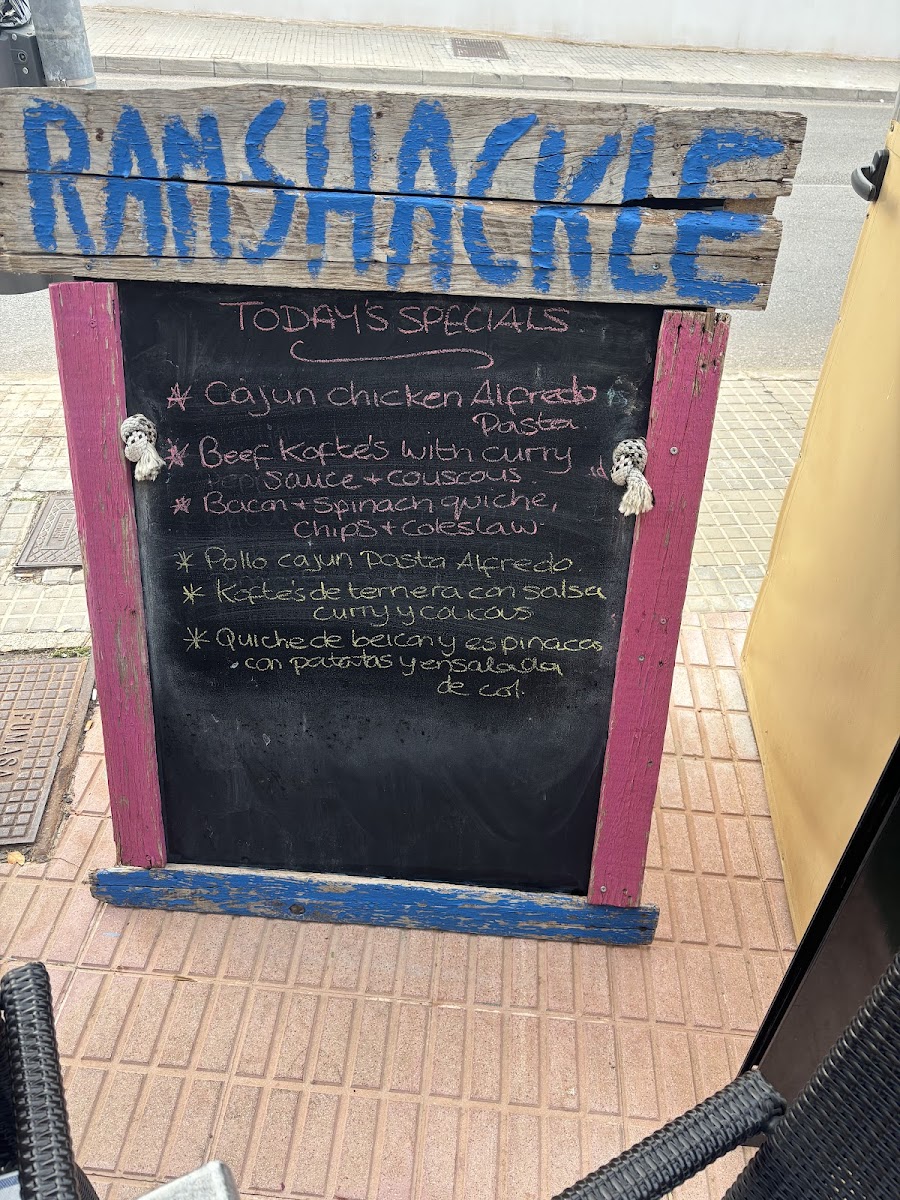 RAMSHACKLE
TODAY'S SPECIALS
* Cajun chicken Alfredo
Pasta.
* Beef Kofte's with curry
sauce + couscous.
* Bacon + spinach quiche,
chips + coleslaw
* Pollo cajun Pasta Alfredo.
* Kofte's de ternera con salsa
curry y coucous
* Quiche de beicon y espinacas
con patatas y ensalada
de col.
FINASA